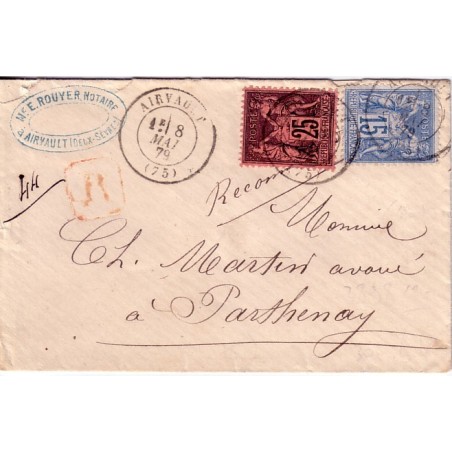 Me E. ROUYER, NOTAIRE
à AIRVAULT (DEUX-SÈVRES)
AIRVAULT
1E 8
MAI
79
(75)
25
15
44
R
Recom
Monsieur
Ch. Martin avoué
à Parthenay